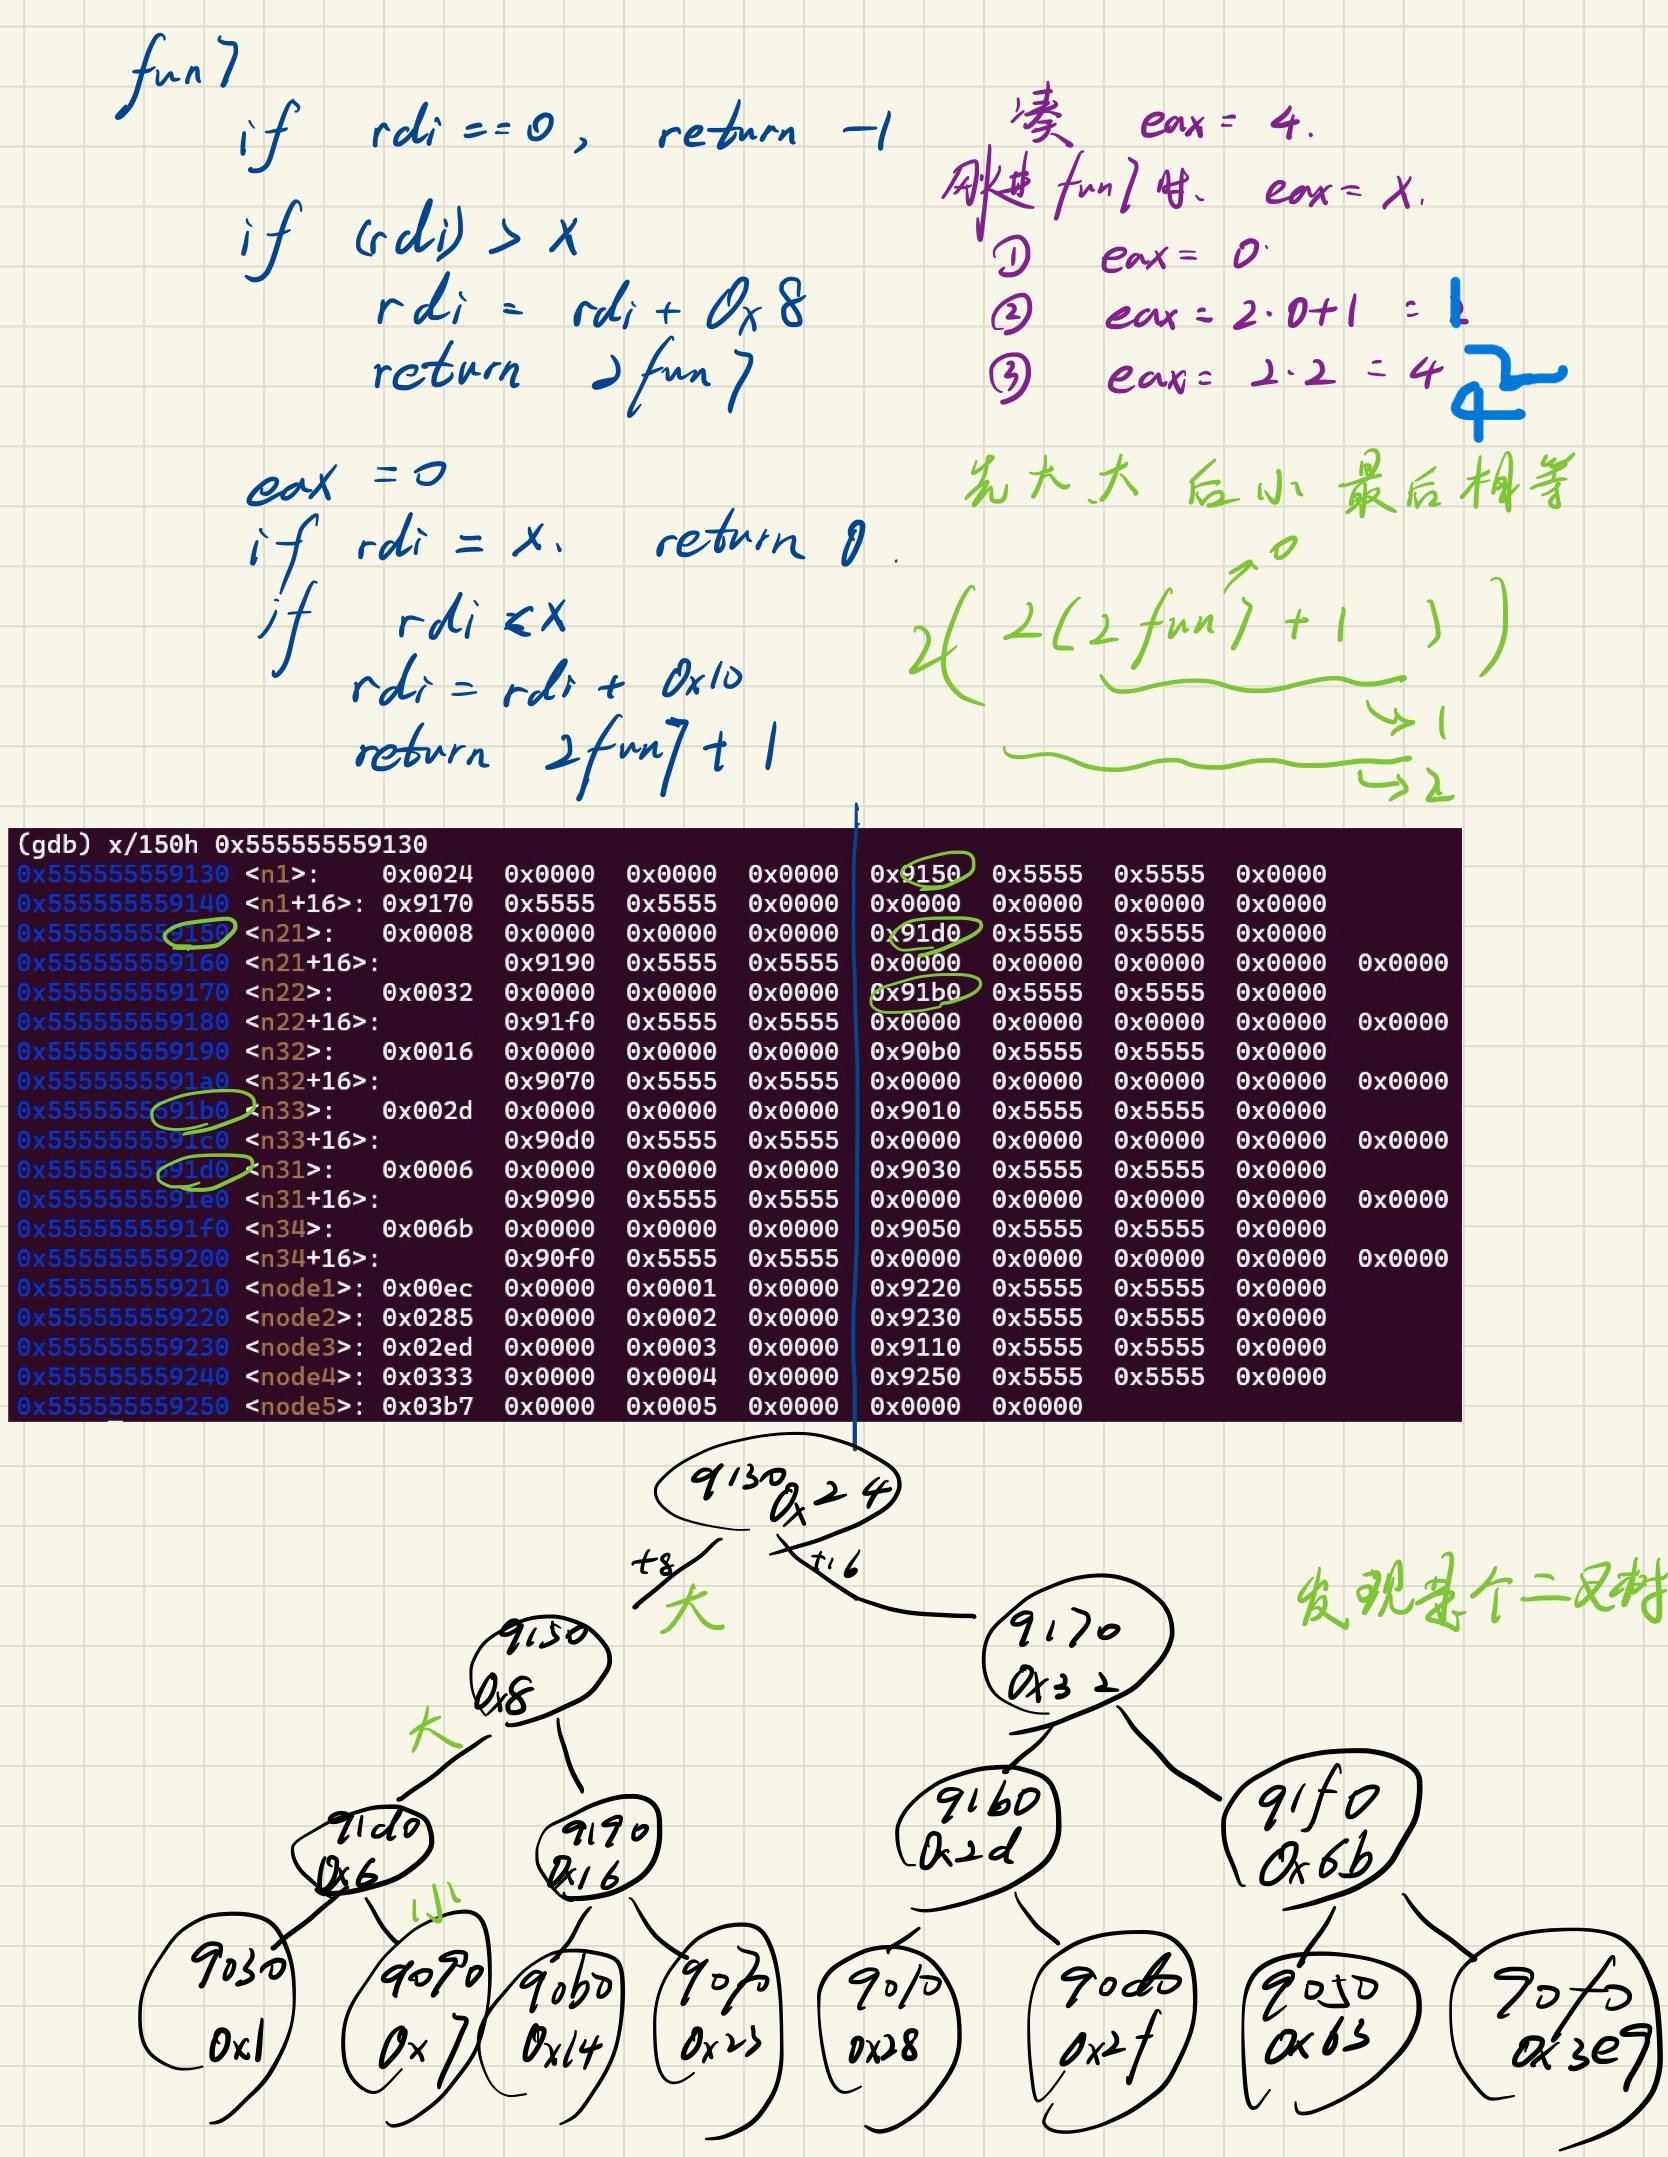 fun7
if rdi == 0, return -1
if (rdi) > x
rdi = rdi + 0x8
return 2fun7
eax = 0
if rdi = x. return 0.
if rdi < x
rdi = rdi + 0x10
return 2fun7 + 1
凑 eax = 4.
刚进 fun7 时. eax = x.
① eax = 0
② eax = 2·0+1 = 1
③ eax = 2·2 = 4
2
4
先大、大 后小 最后相等
0
2( 2( 2fun7 + 1 ) )
→ 1
→ 2
(gdb) x/150h 0x555555559130
0x555555559130 <n1>: 0x0024 0x0000 0x0000 0x0000 0x9150 0x5555 0x5555 0x0000
0x555555559140 <n1+16>: 0x9170 0x5555 0x5555 0x0000 0x0000 0x0000 0x0000 0x0000
0x555555559150 <n21>: 0x0008 0x0000 0x0000 0x0000 0x91d0 0x5555 0x5555 0x0000
0x555555559160 <n21+16>: 0x9190 0x5555 0x5555 0x0000 0x0000 0x0000 0x0000 0x0000
0x555555559170 <n22>: 0x0032 0x0000 0x0000 0x0000 0x91b0 0x5555 0x5555 0x0000
0x555555559180 <n22+16>: 0x91f0 0x5555 0x5555 0x0000 0x0000 0x0000 0x0000 0x0000
0x555555559190 <n32>: 0x0016 0x0000 0x0000 0x0000 0x90b0 0x5555 0x5555 0x0000
0x5555555591a0 <n32+16>: 0x9070 0x5555 0x5555 0x0000 0x0000 0x0000 0x0000 0x0000
0x5555555591b0 <n33>: 0x002d 0x0000 0x0000 0x0000 0x9010 0x5555 0x5555 0x0000
0x5555555591c0 <n33+16>: 0x90d0 0x5555 0x5555 0x0000 0x0000 0x0000 0x0000 0x0000
0x5555555591d0 <n31>: 0x0006 0x0000 0x0000 0x0000 0x9030 0x5555 0x5555 0x0000
0x5555555591e0 <n31+16>: 0x9090 0x5555 0x5555 0x0000 0x0000 0x0000 0x0000 0x0000
0x5555555591f0 <n34>: 0x006b 0x0000 0x0000 0x0000 0x9050 0x5555 0x5555 0x0000
0x555555559200 <n34+16>: 0x90f0 0x5555 0x5555 0x0000 0x0000 0x0000 0x0000 0x0000
0x555555559210 <node1>: 0x00ec 0x0000 0x0001 0x0000 0x9220 0x5555 0x5555 0x0000
0x555555559220 <node2>: 0x0285 0x0000 0x0002 0x0000 0x9230 0x5555 0x5555 0x0000
0x555555559230 <node3>: 0x02ed 0x0000 0x0003 0x0000 0x9110 0x5555 0x5555 0x0000
0x555555559240 <node4>: 0x0333 0x0000 0x0004 0x0000 0x9250 0x5555 0x5555 0x0000
0x555555559250 <node5>: 0x03b7 0x0000 0x0005 0x0000 0x0000 0x0000
9130
0x24
+8
+16
大
发现是个二叉树
9150
0x8
9170
0x32
大
91d0
0x6
9190
0x16
91b0
0x2d
91f0
0x6b
小
9030
0x1
9090
0x7
90b0
0x14
9070
0x23
9010
0x28
90d0
0x2f
9050
0x63
90f0
0x3e9